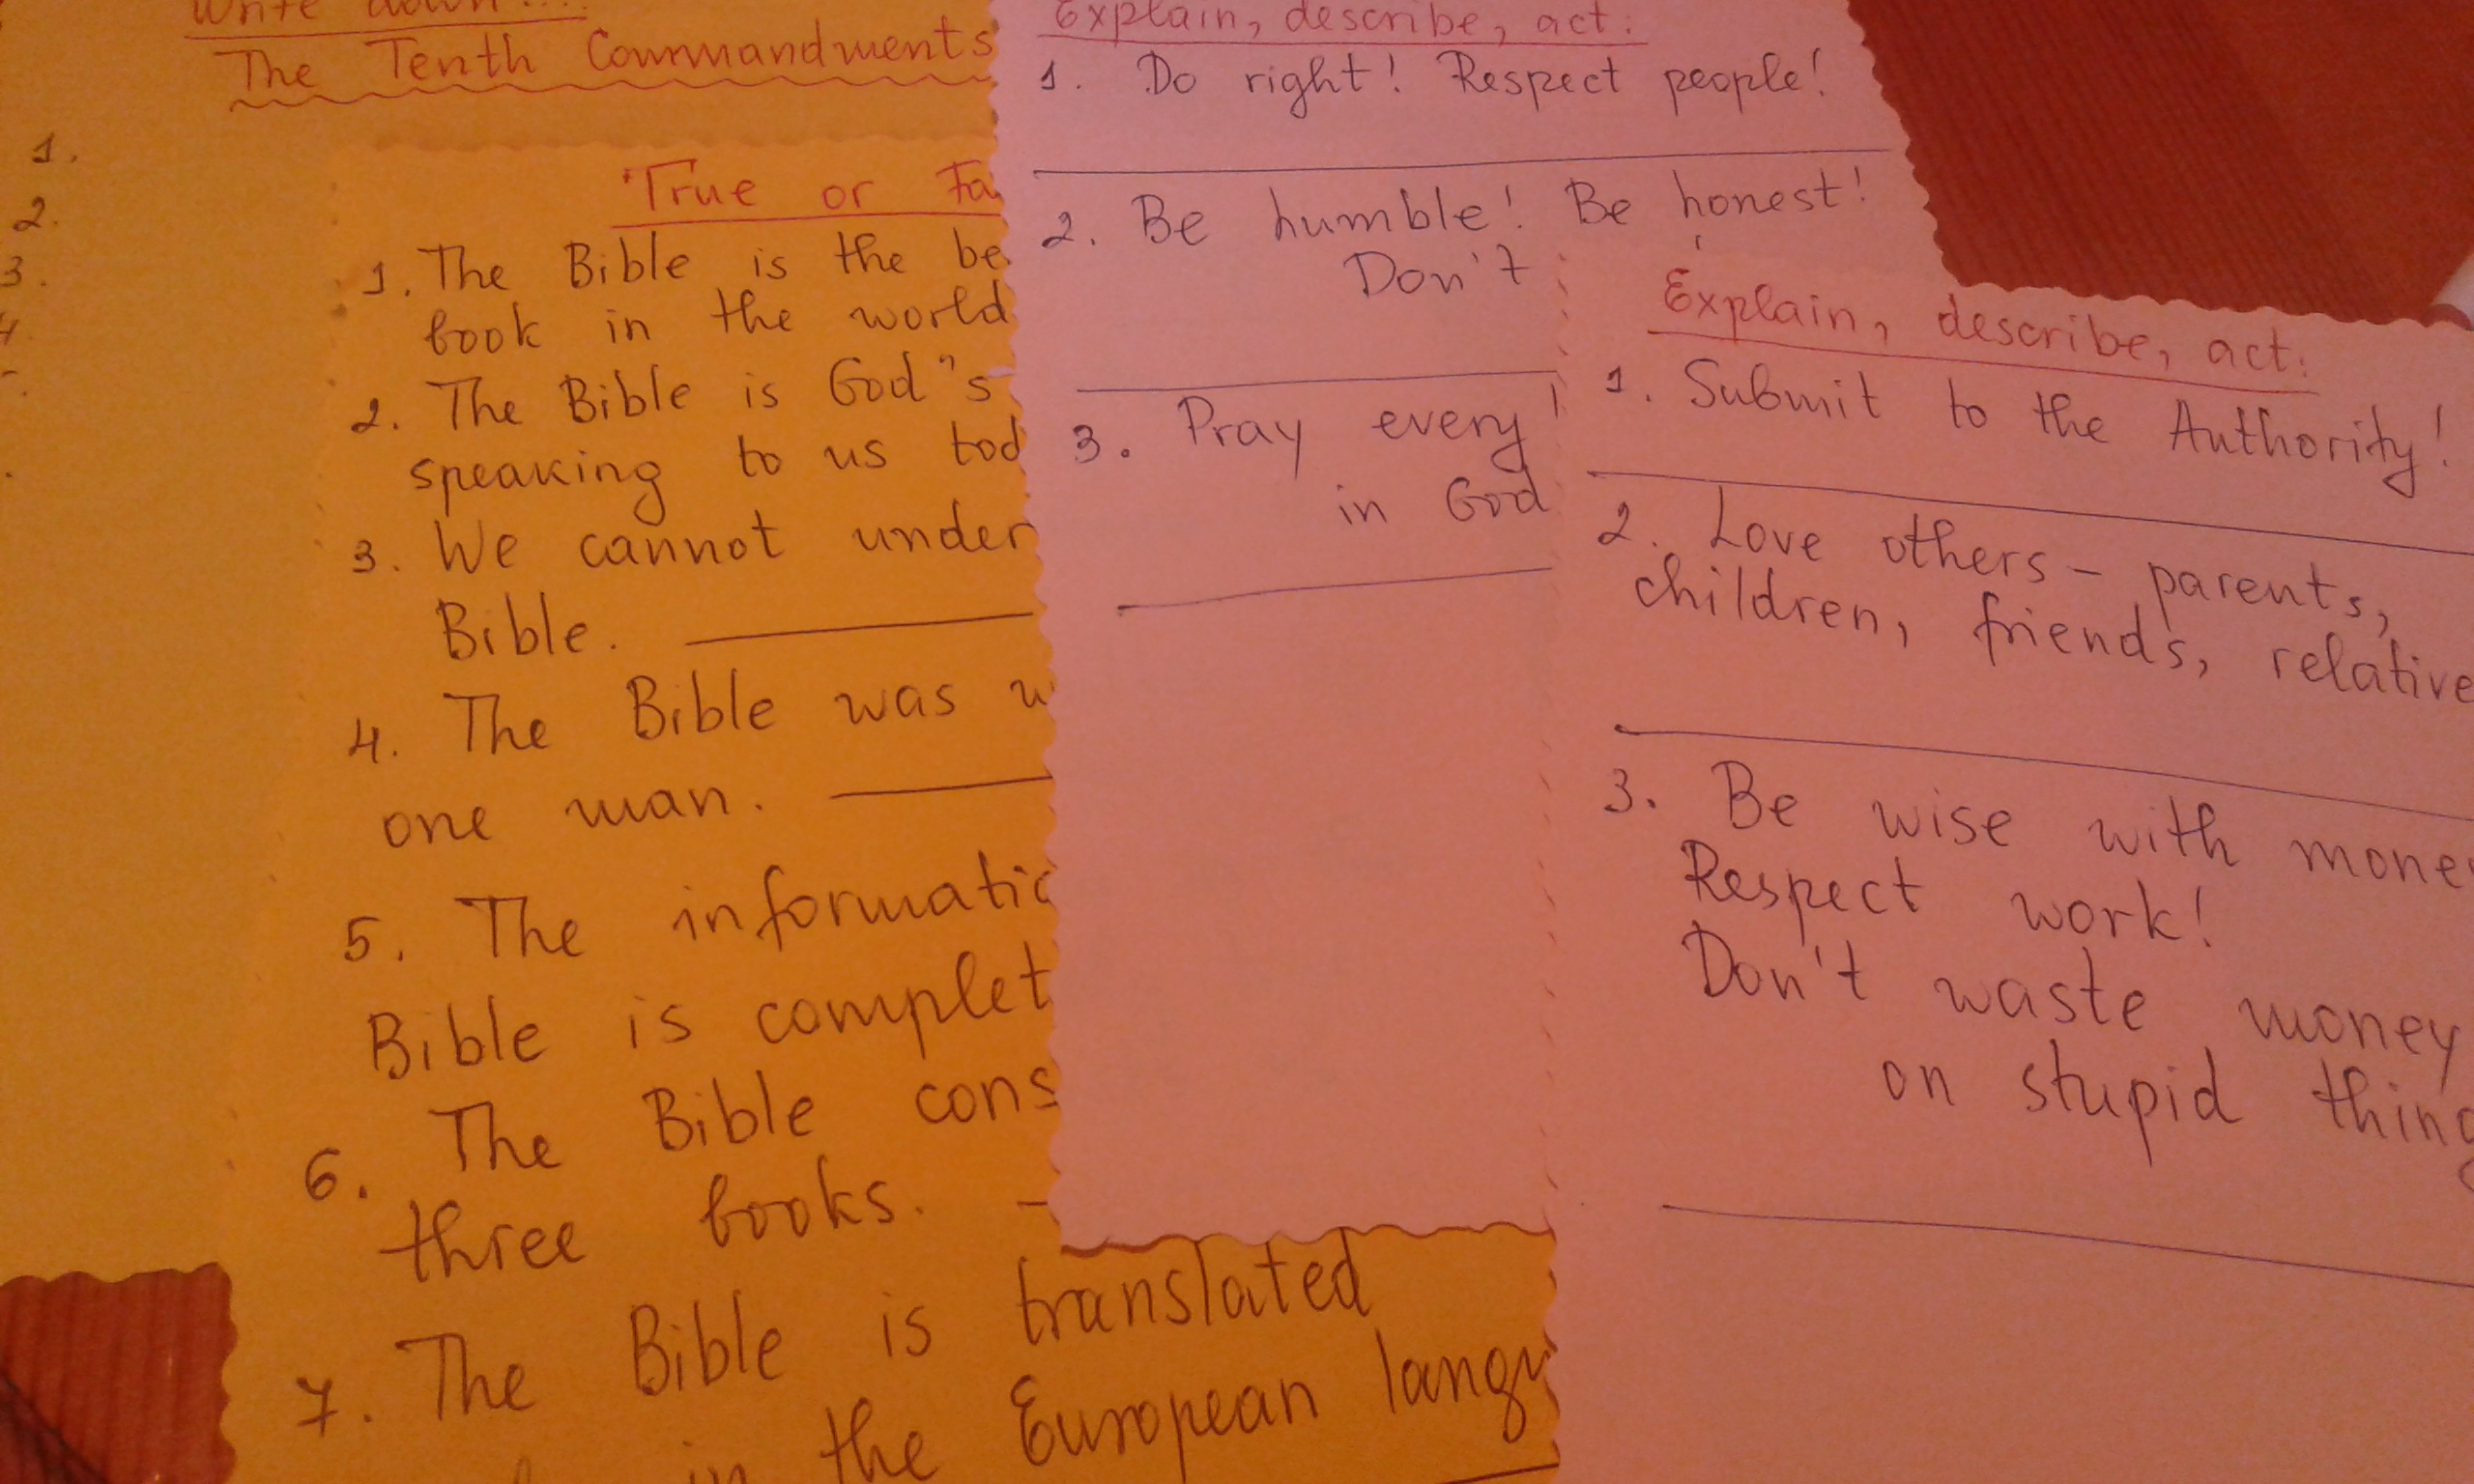 Write down....
The Tenth Commandments
1.
2.
3.
4.
True or Fa
1. The Bible is the be
book in the world
2. The Bible is God"s
speaking to us tod
3. We cannot under
Bible.
4. The Bible was w
one man.
5. The informatic
Bible is complet
6. The Bible cons
three books.
7. The Bible is translated
in the European langu
Explain, describe, act:
1. Do right! Respect people!
2. Be humble! Be honest!
Don't
3. Pray every
in God
Explain, describe, act:
1. Submit to the Authority!
2. Love others - parents,
children, friends, relative
3. Be wise with mone
Respect work!
Don't waste money
on stupid thing